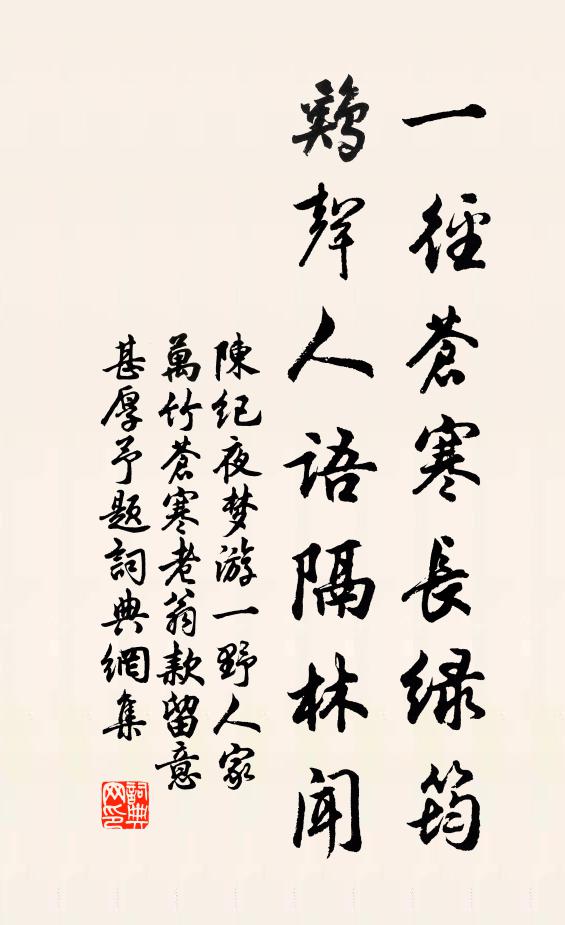 一徑蒼寒長緑筠
鷄聲人語隔林聞
陳紀夜梦游一野人家
萬竹蒼寒老翁款留意
甚厚予题詞典網集
詞典网印